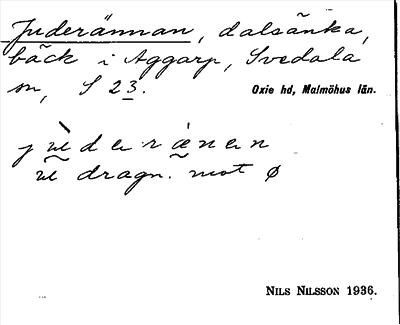 Juderännan, dalsänka,
bäck i Aggarp, Svedala
sn, S 23. Oxie hd, Malmöhus län.
dragn. mot ø
NILS NILSSON 1936.